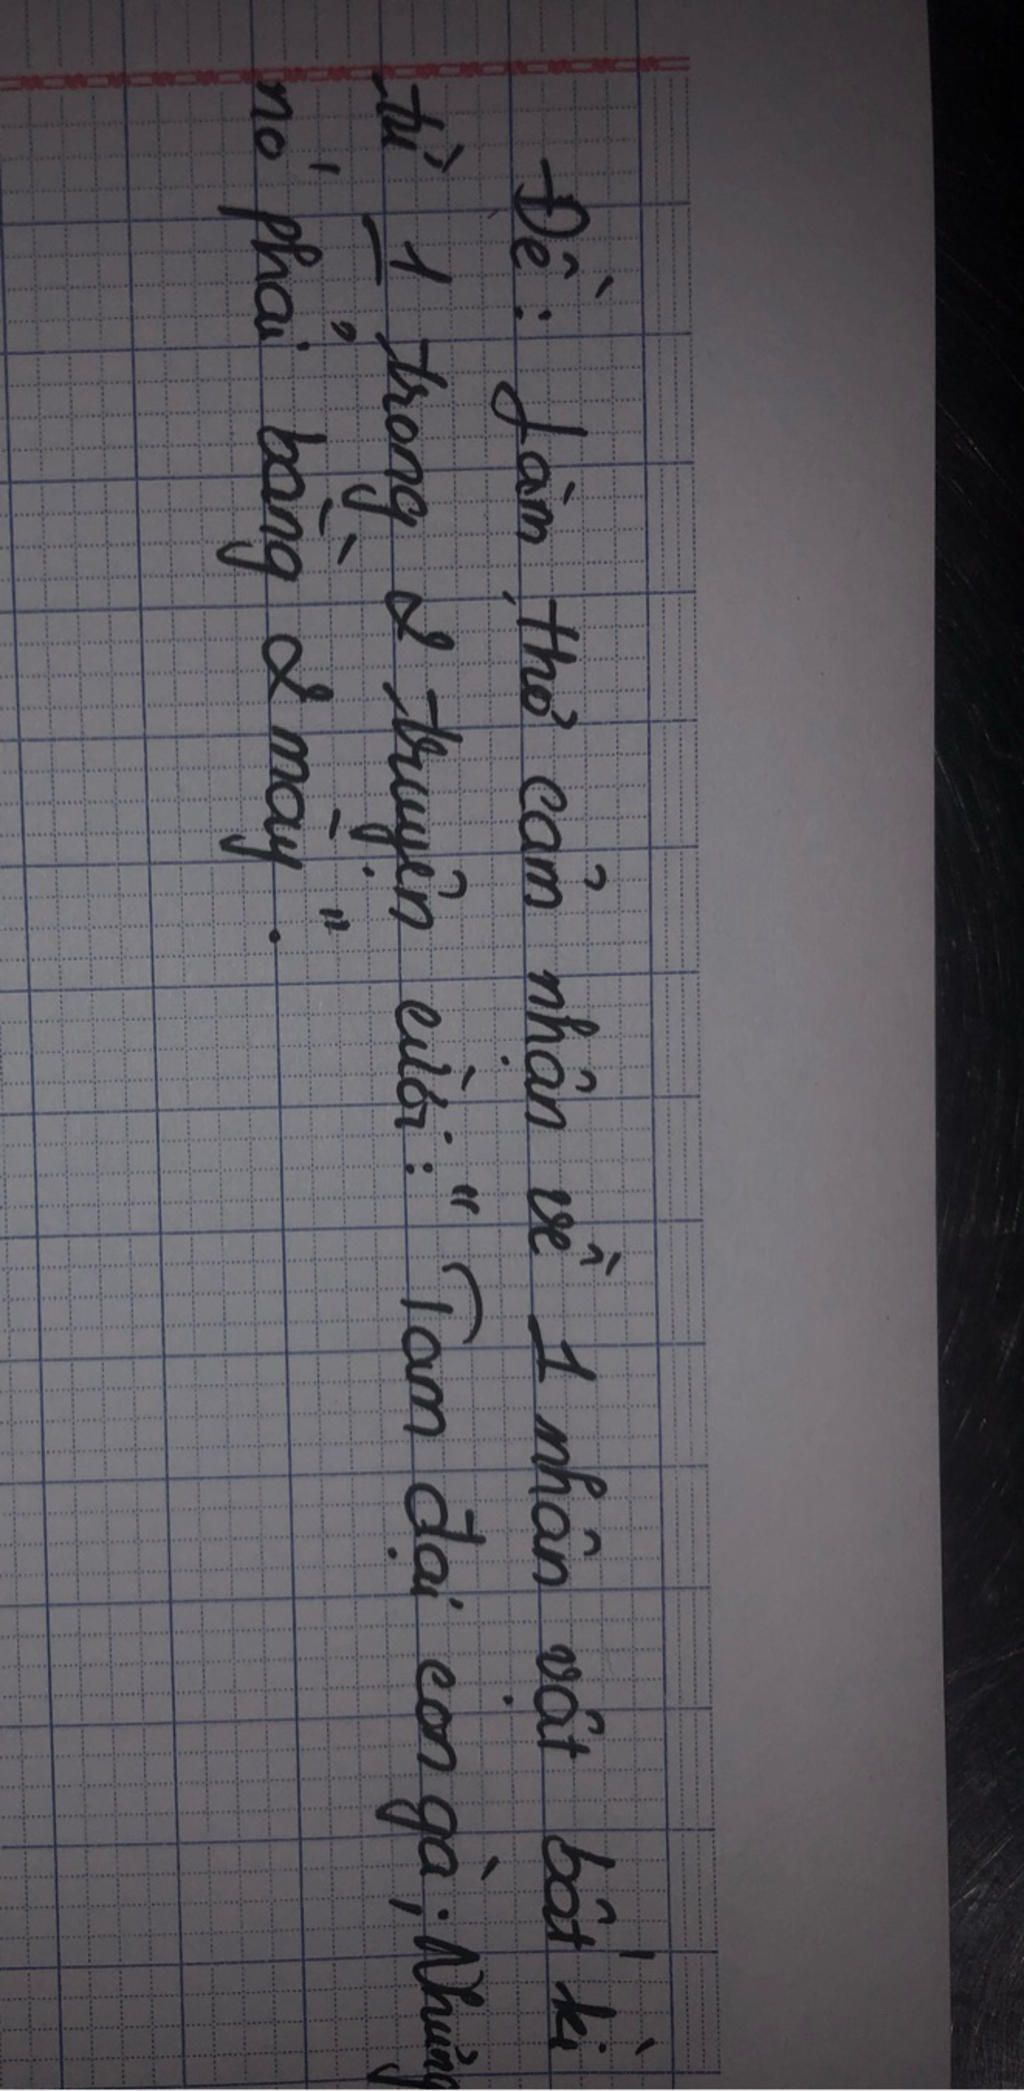 Đề: Làm thơ cảm nhận về 1 nhân vật bất kì
từ 1 trong 2 truyện cười: "Tam đại con gà; Nhưng
nó phải bằng 2 mày".